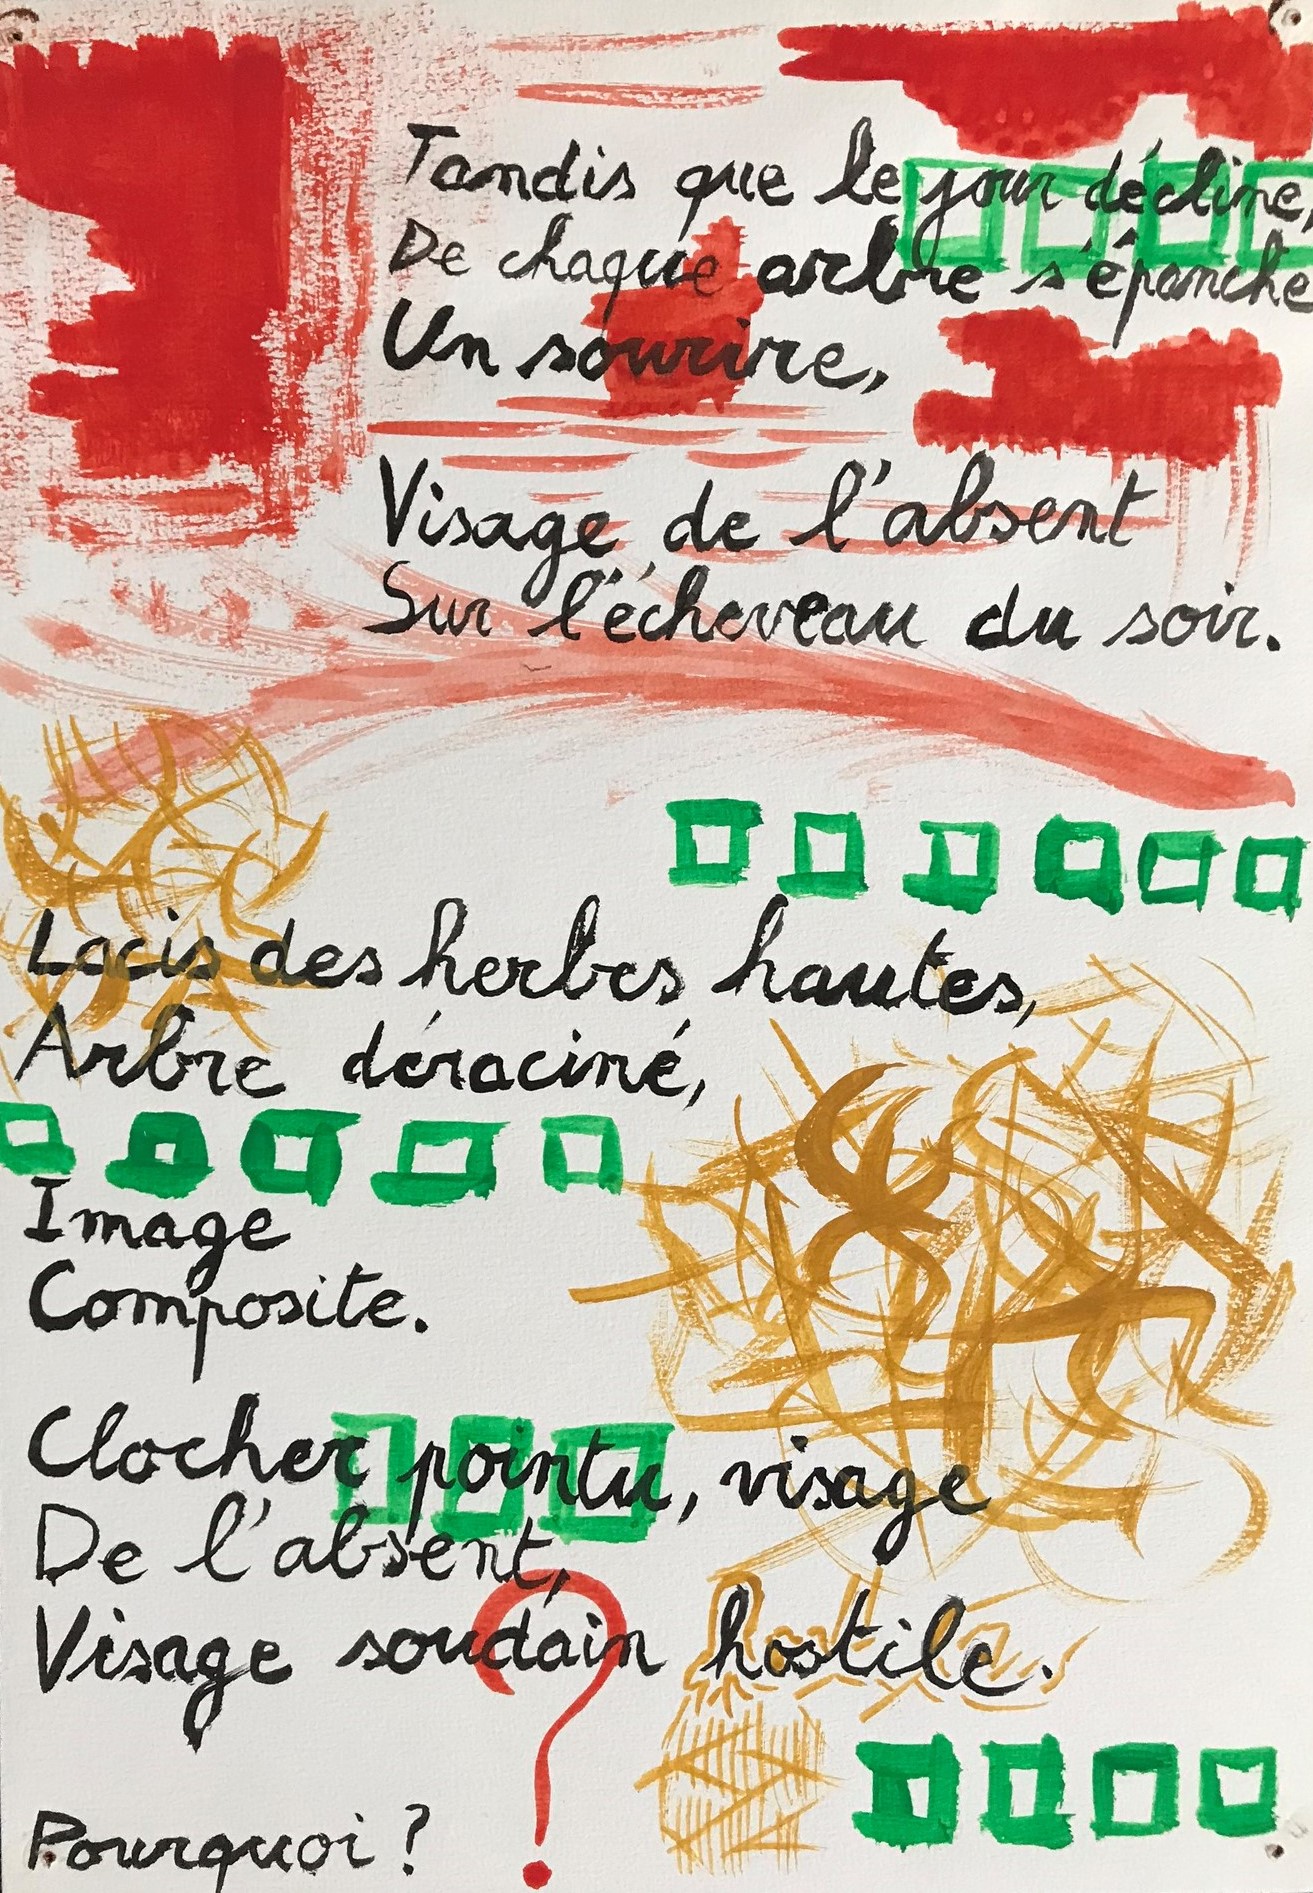 Tandis que le jour décline,
De chaque arbre s'épanche
Un sourire,
Visage de l'absent
Sur l'écheveau du soir.
Lacis des herbes hautes,
Arbre déraciné,
Image
Composite.
Clocher pointu, visage
De l'absent,
Visage soudain hostile.
Pourquoi ?